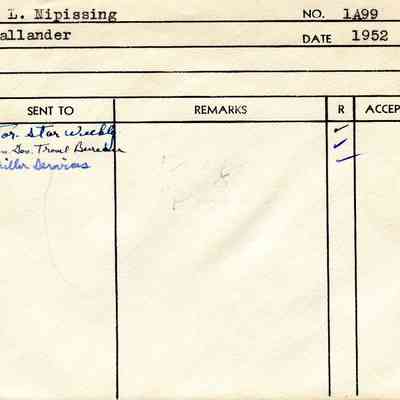 L. Nipissing NO. 1A99
allander DATE 1952
SENT TO REMARKS R ACCEP
Tor. Star Weekly
Gov. Travel Bureau
iller Services